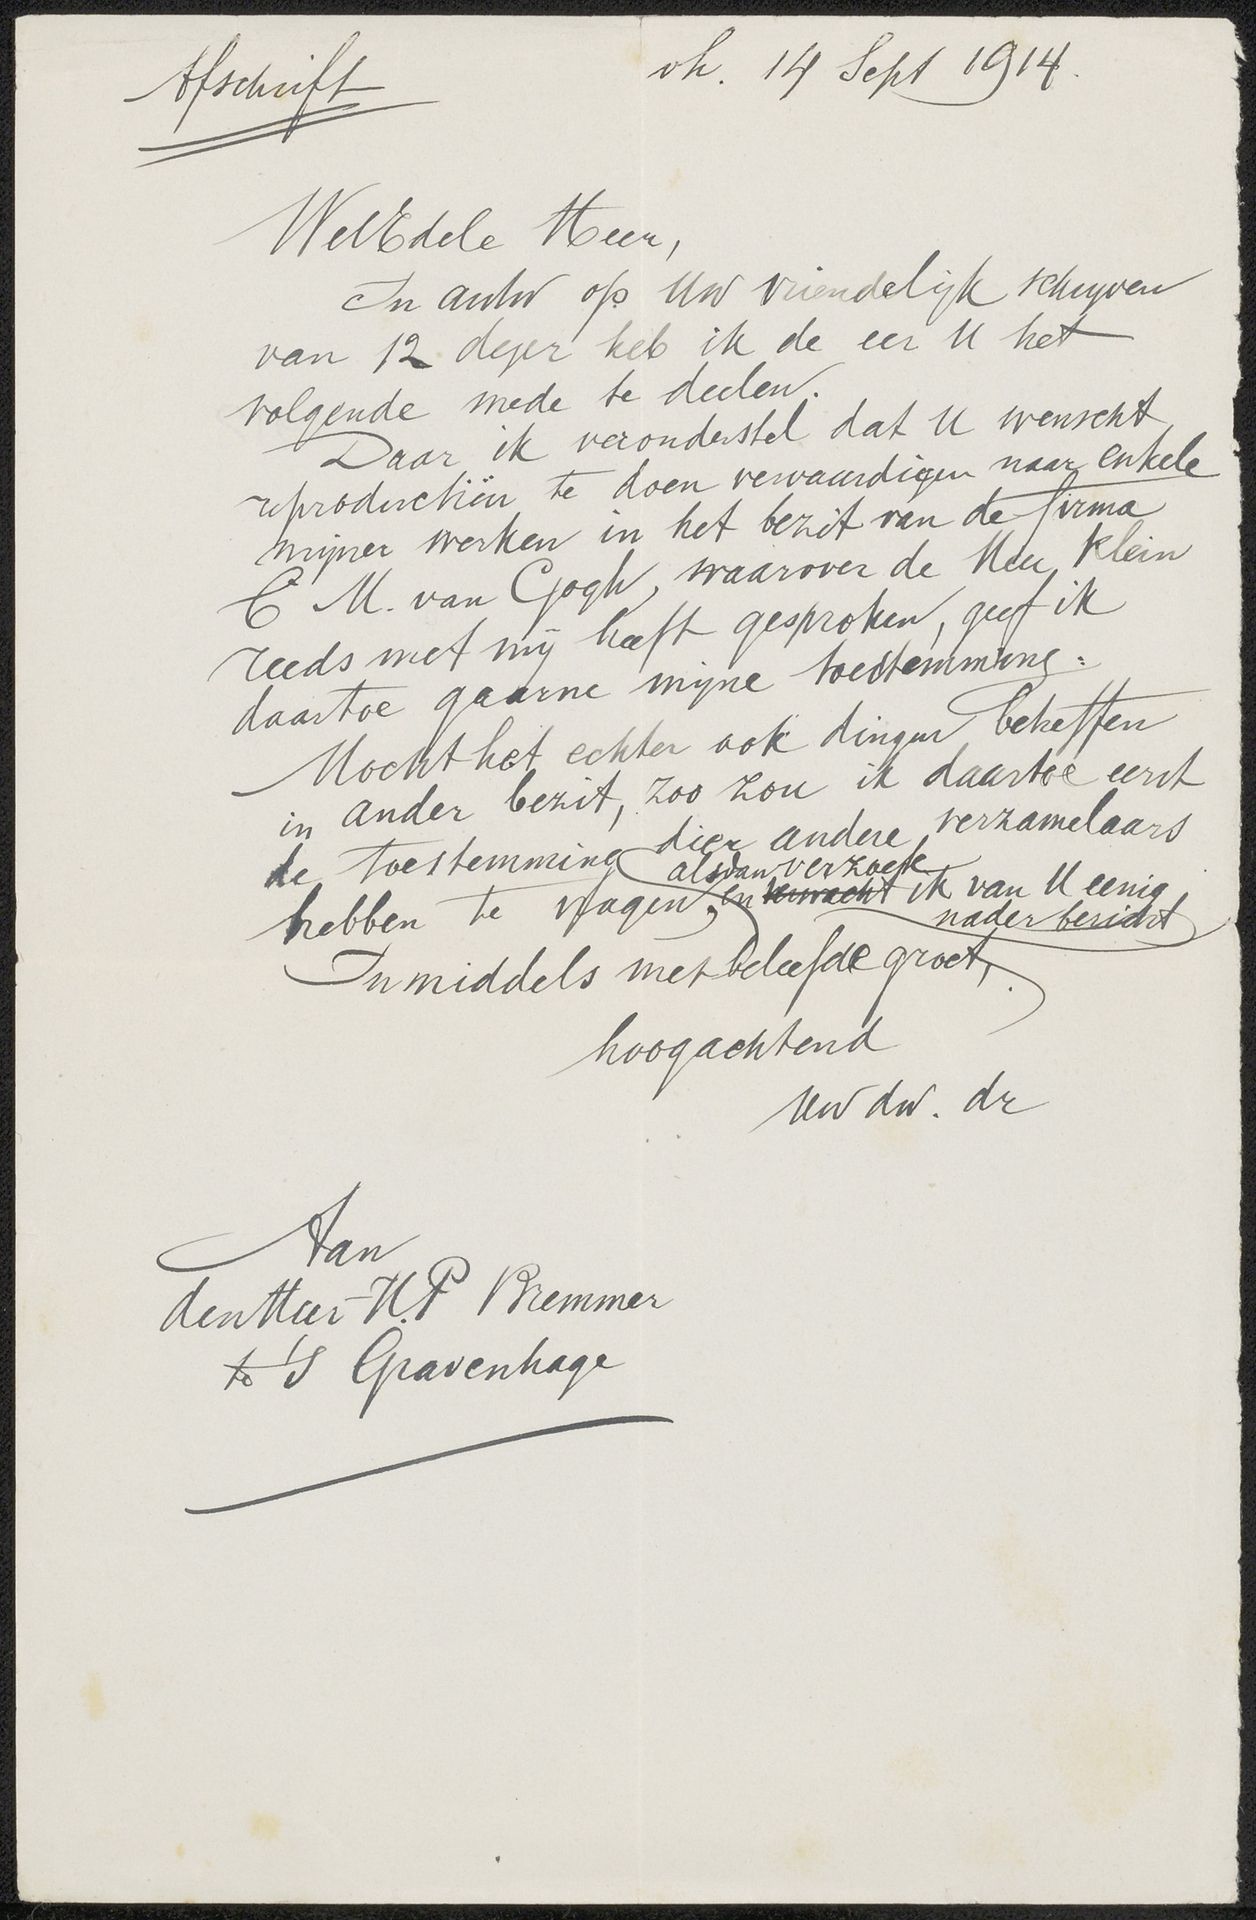 Afschrift
vh. 14 Sept 1914.
WelEdele Heer,
In antw op Uw vriendelijk schrijven
van 12 dezer heb ik de eer U het
volgende mede te deelen.
Daar ik veronderstel dat U wenscht
reproductiën te doen vervaardigen naar enkele
mijner werken in het bezit van de firma
C M. van Gogh, waarover de Heer Klein
reeds met mij heeft gesproken, geef ik
daartoe gaarne mijne toestemming.
Mocht het echter ook dingen betreffen
in ander bezit, zoo zou ik daartoe eerst
de toestemming dier andere verzamelaars
alsdan verzoek
hebben te vragen, en verwacht ik van U eenig
nader bericht
Inmiddels met beleefde groet,
hoogachtend
Uw dw. dr
Aan
den Heer H.P Bremmer
te 's Gravenhage